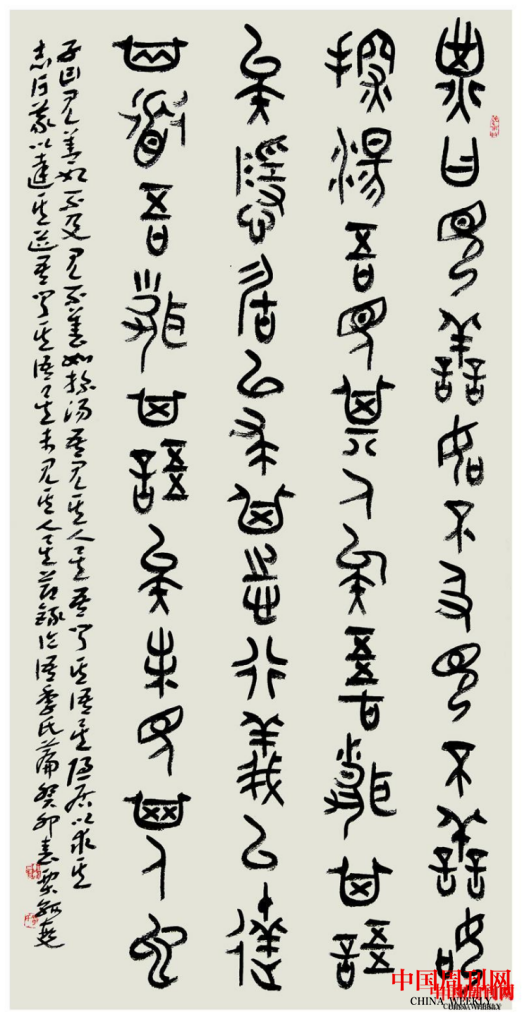 子曰見善如不及見不善如
探湯吾見其人矣吾聞其語
矣隱居以求其志行義以達
其道吾聞其語矣未見其人也
子曰見善如不及見不善如探湯吾見其人矣吾聞其語矣隱居以求其
志行義以達其道吾聞其語矣未見其人矣節錄論語季氏篇癸卯春
中国周刊网
CHINA WEEKLY